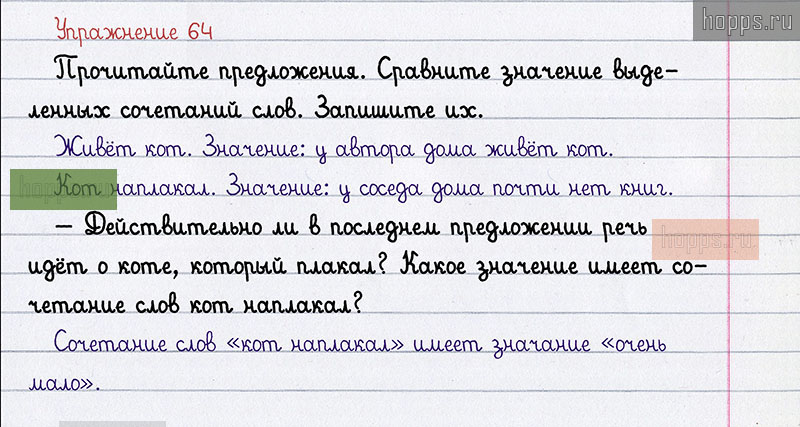 hopps.ru
Упражнение 64
Прочитайте предложения. Сравните значение выде-
ленных сочетаний слов. Запишите их.
Живёт кот. Значение: у автора дома живёт кот.
Кот наплакал. Значение: у соседа дома почти нет книг.
– Действительно ли в последнем предложении речь
hopps.ru
идёт о коте, который плакал? Какое значение имеет со-
четание слов кот наплакал?
Сочетание слов «кот наплакал» имеет значание «очень
мало».